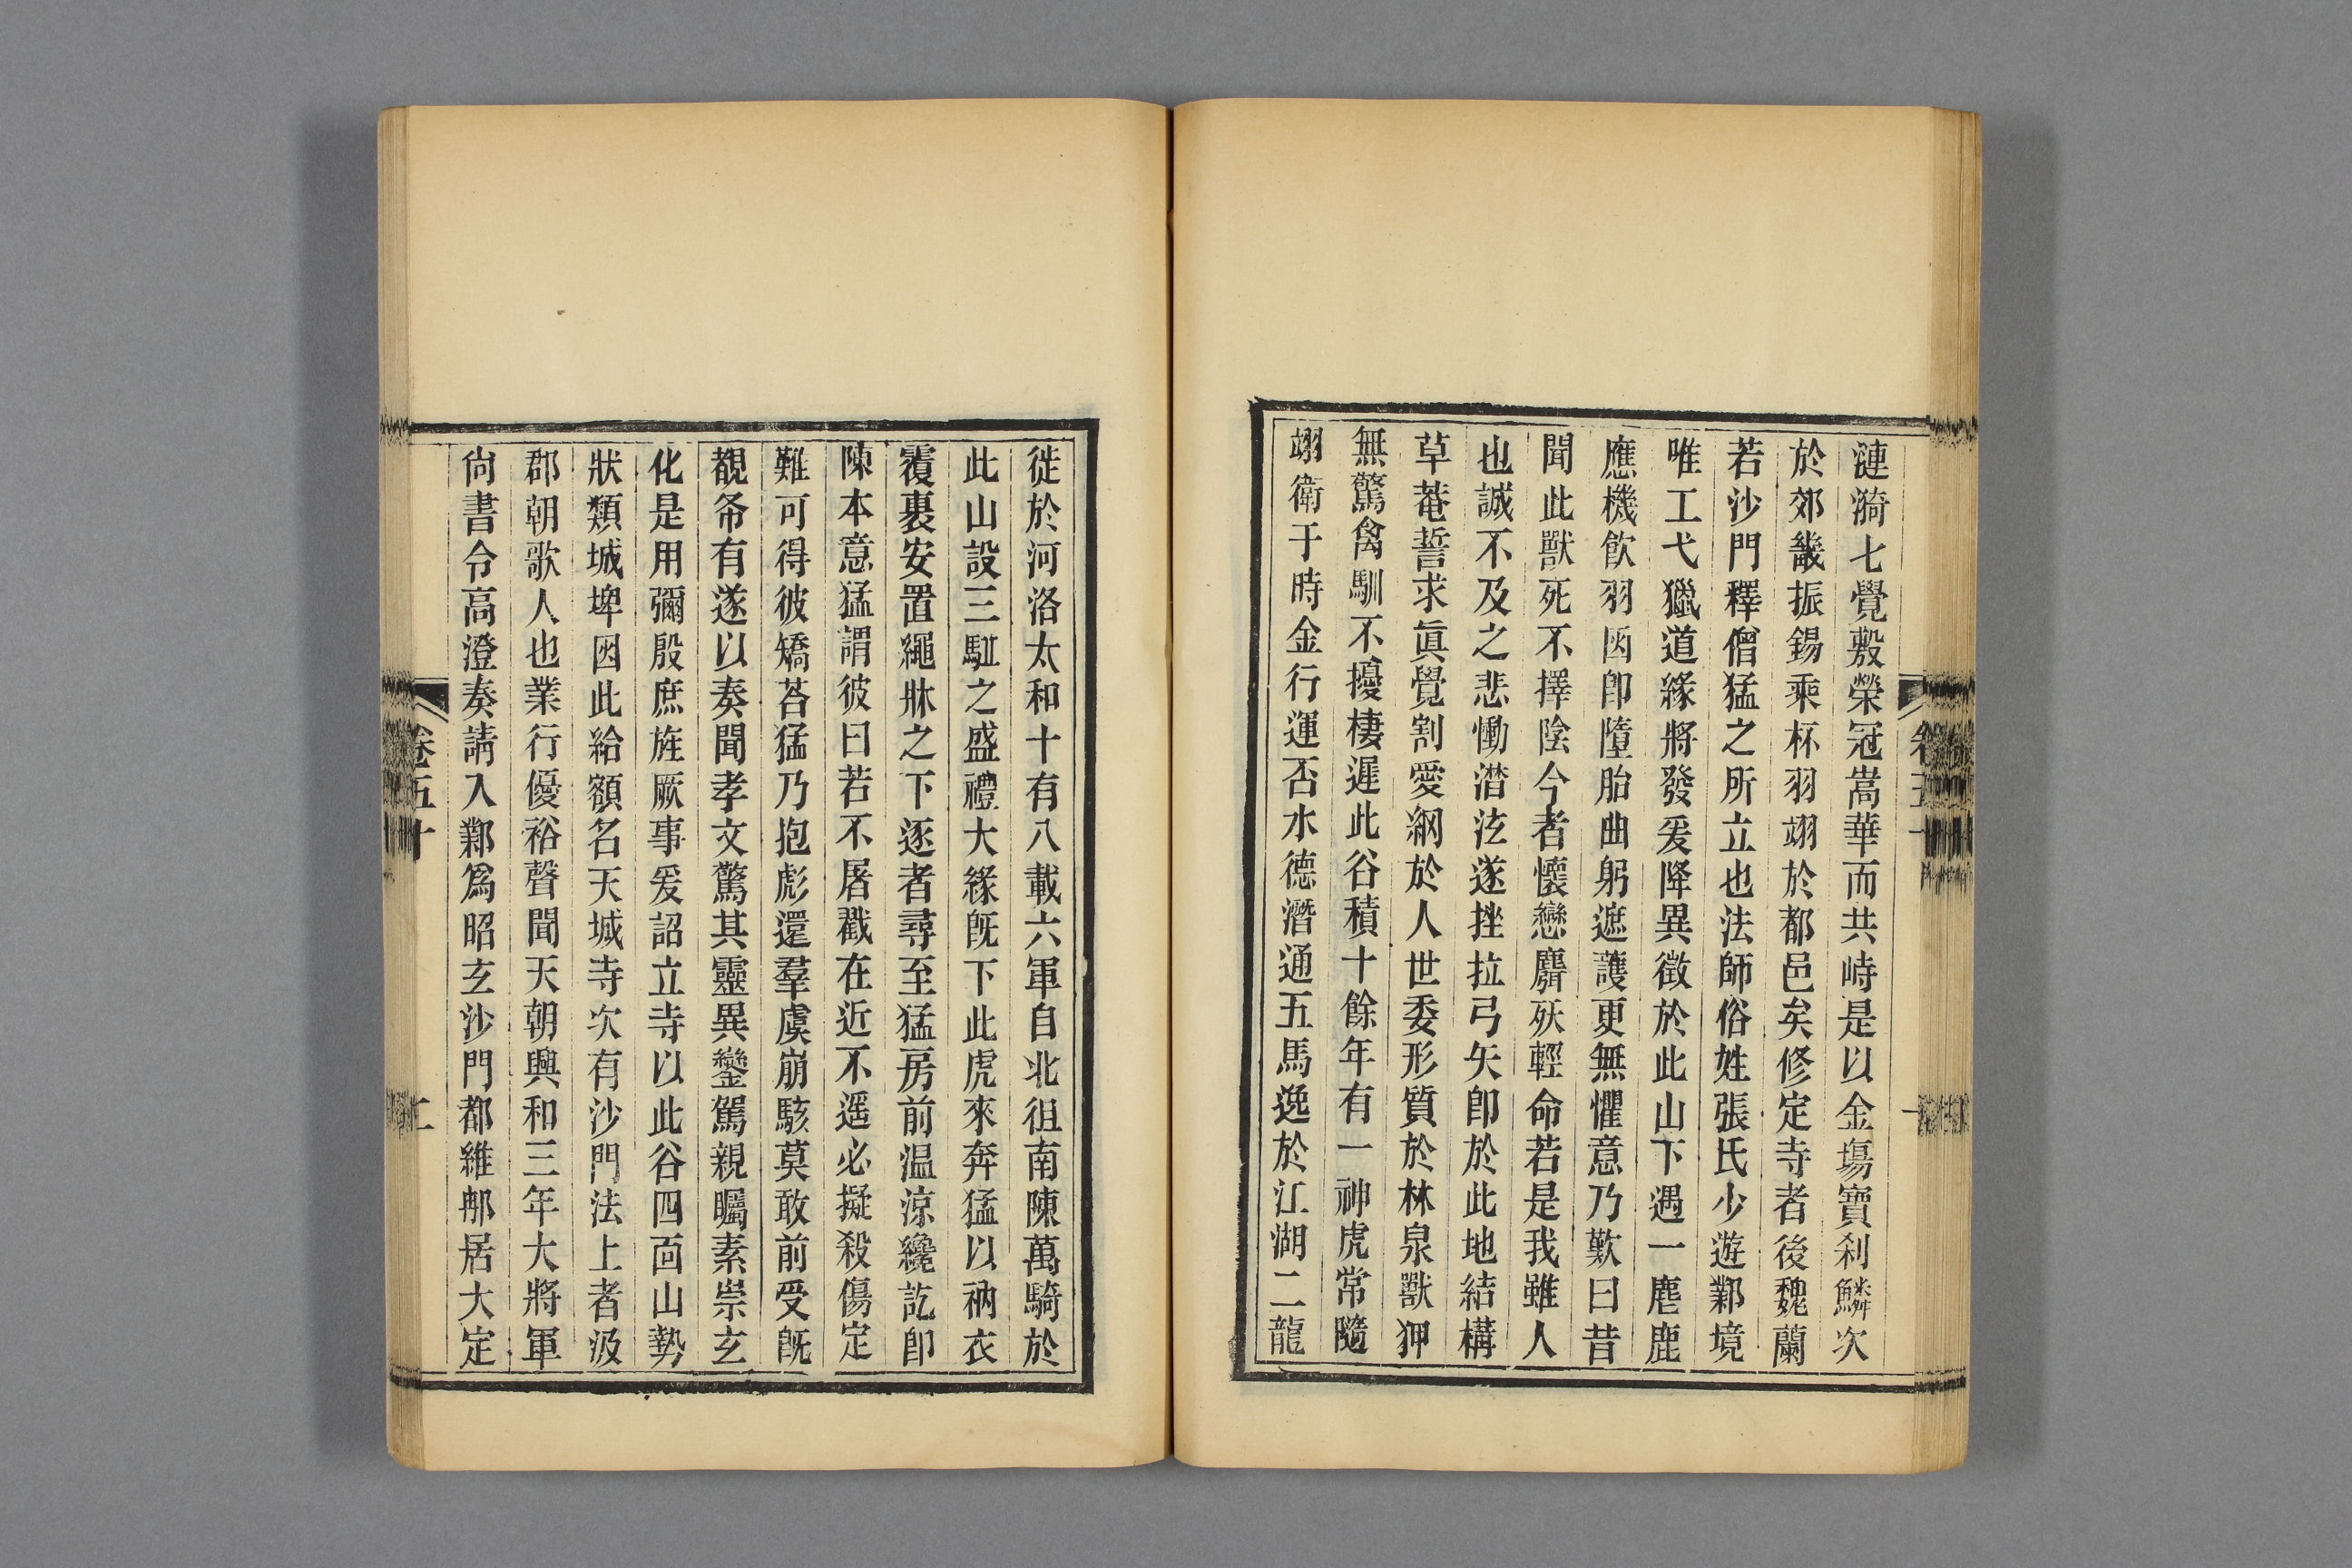 漣漪七覺敷榮冠嵩華而共峙是以金塲寶刹鱗次
於郊畿振錫乘杯羽翊於都邑矣修定寺者後魏蘭
若沙門釋僧猛之所立也法師俗姓張氏少遊鄴境
唯工弋獵道緣將發爰降異徵於此山下遇一麀鹿
應機飲羽因卽墮胎曲躬遮護更無懼意乃歎曰昔
聞此獸死不擇陰今者懷戀麛殀輕命若是我雖人
也誠不及之悲慟潸泫遂挫拉弓矢卽於此地結構
草菴誓求眞覺割愛網於人世委形質於林泉獸狎
無驚禽馴不擾棲遲此谷積十餘年有一神虎常隨
翊衛于時金行運否水德潛通五馬逸於江湖二龍
徙於河洛太和十有八載六軍自北徂南陳萬騎於
此山設三駈之盛禮大緣旣下此虎來奔猛以衲衣
覆裹安置繩牀之下逐者尋至猛房前温凉纔訖卽
陳本意猛謂彼曰若不屠戳在近不遥必擬殺傷定
難可得彼矯荅猛乃抱彪還羣虞崩駭莫敢前受旣
覩希有遂以奏聞孝文驚其靈異鑾駕親矚素崇玄
化是用彌殷庶旌厥事爰詔立寺以此谷四面山勢
狀類城埤因此給額名天城寺次有沙門法上者汲
郡朝歌人也業行優裕聲聞天朝興和三年大將軍
尙書令高澄奏請入鄴爲昭玄沙門都維郍居大定
卷五十
二